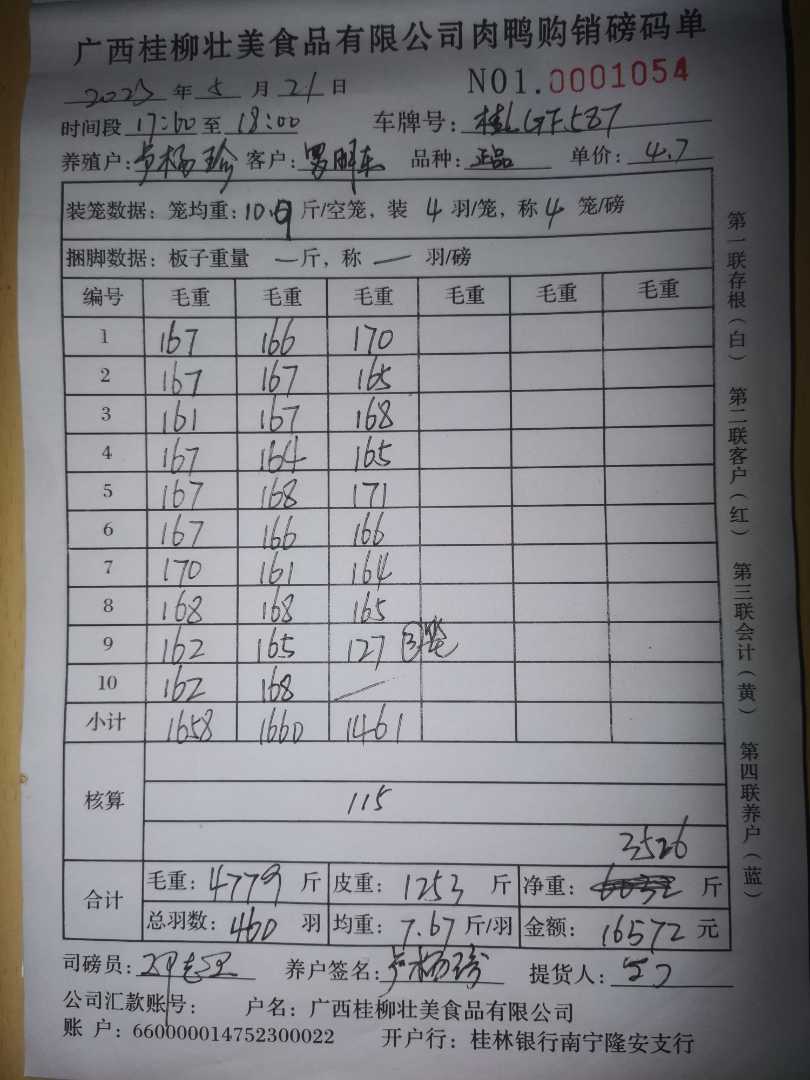 广西桂柳壮美食品有限公司肉鸭购销磅码单
2023年5月21日 NO1.0001054
时间段 17:00至 18:00 车牌号: 桂LGF587
养殖户: 卢杨珍 客户: 罗 品种: 正品 单价: 4.7
装笼数据: 笼均重: 10.9斤/空笼, 装 4 羽/笼, 称 4 笼/磅
捆脚数据: 板子重量 — 斤, 称 — 羽/磅
编号 毛重 毛重 毛重 毛重 毛重 毛重
1 167 166 170
2 167 167 165
3 161 167 168
4 167 164 165
5 167 168 171
6 167 166 166
7 170 161 164
8 168 168 165
9 162 165 127 ③笼
10 162 168 —
小计 1658 1660 1461
核算 115
3526
合计 毛重: 4779 斤 皮重: 1253 斤 净重: 斤
总羽数: 460 羽 均重: 7.67 斤/羽 金额: 16572 元
司磅员: 养户签名: 卢杨珍 提货人:
公司汇款账号: 户名: 广西桂柳壮美食品有限公司
账 户: 660000014752300022 开户行: 桂林银行南宁隆安支行
第一联存根(白) 第二联客户(红) 第三联会计(黄) 第四联养户(蓝)